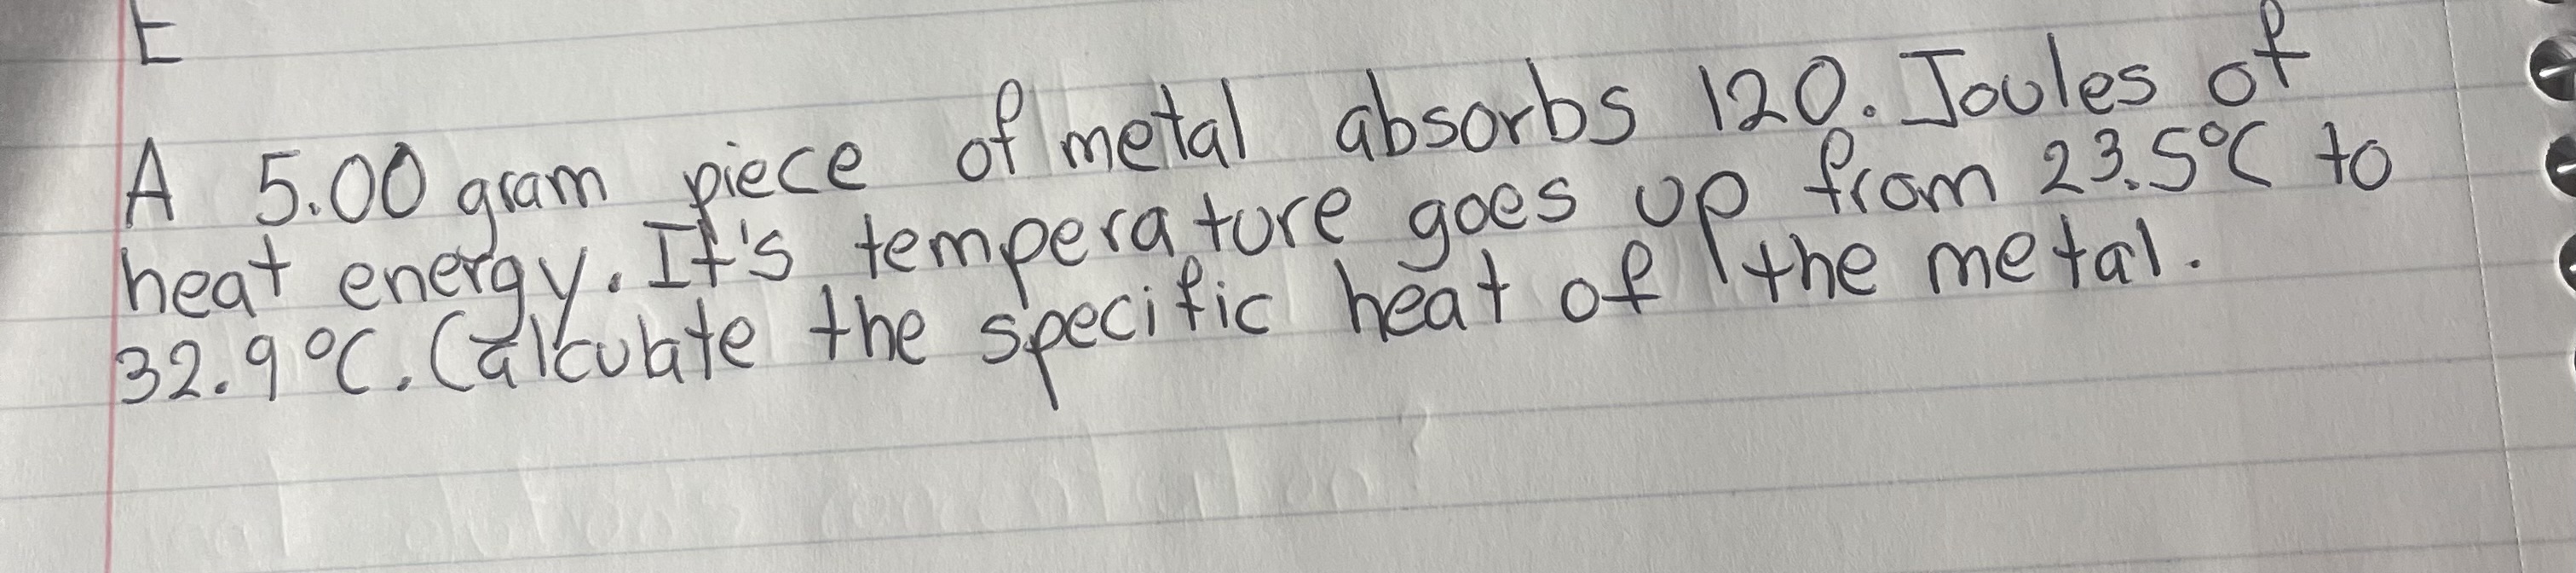 E
A 5.00 gram piece of metal absorbs 120. Joules of
heat energy. It's temperature goes up from 23.5°C to
32.9°C. Calculate the specific heat of the metal.